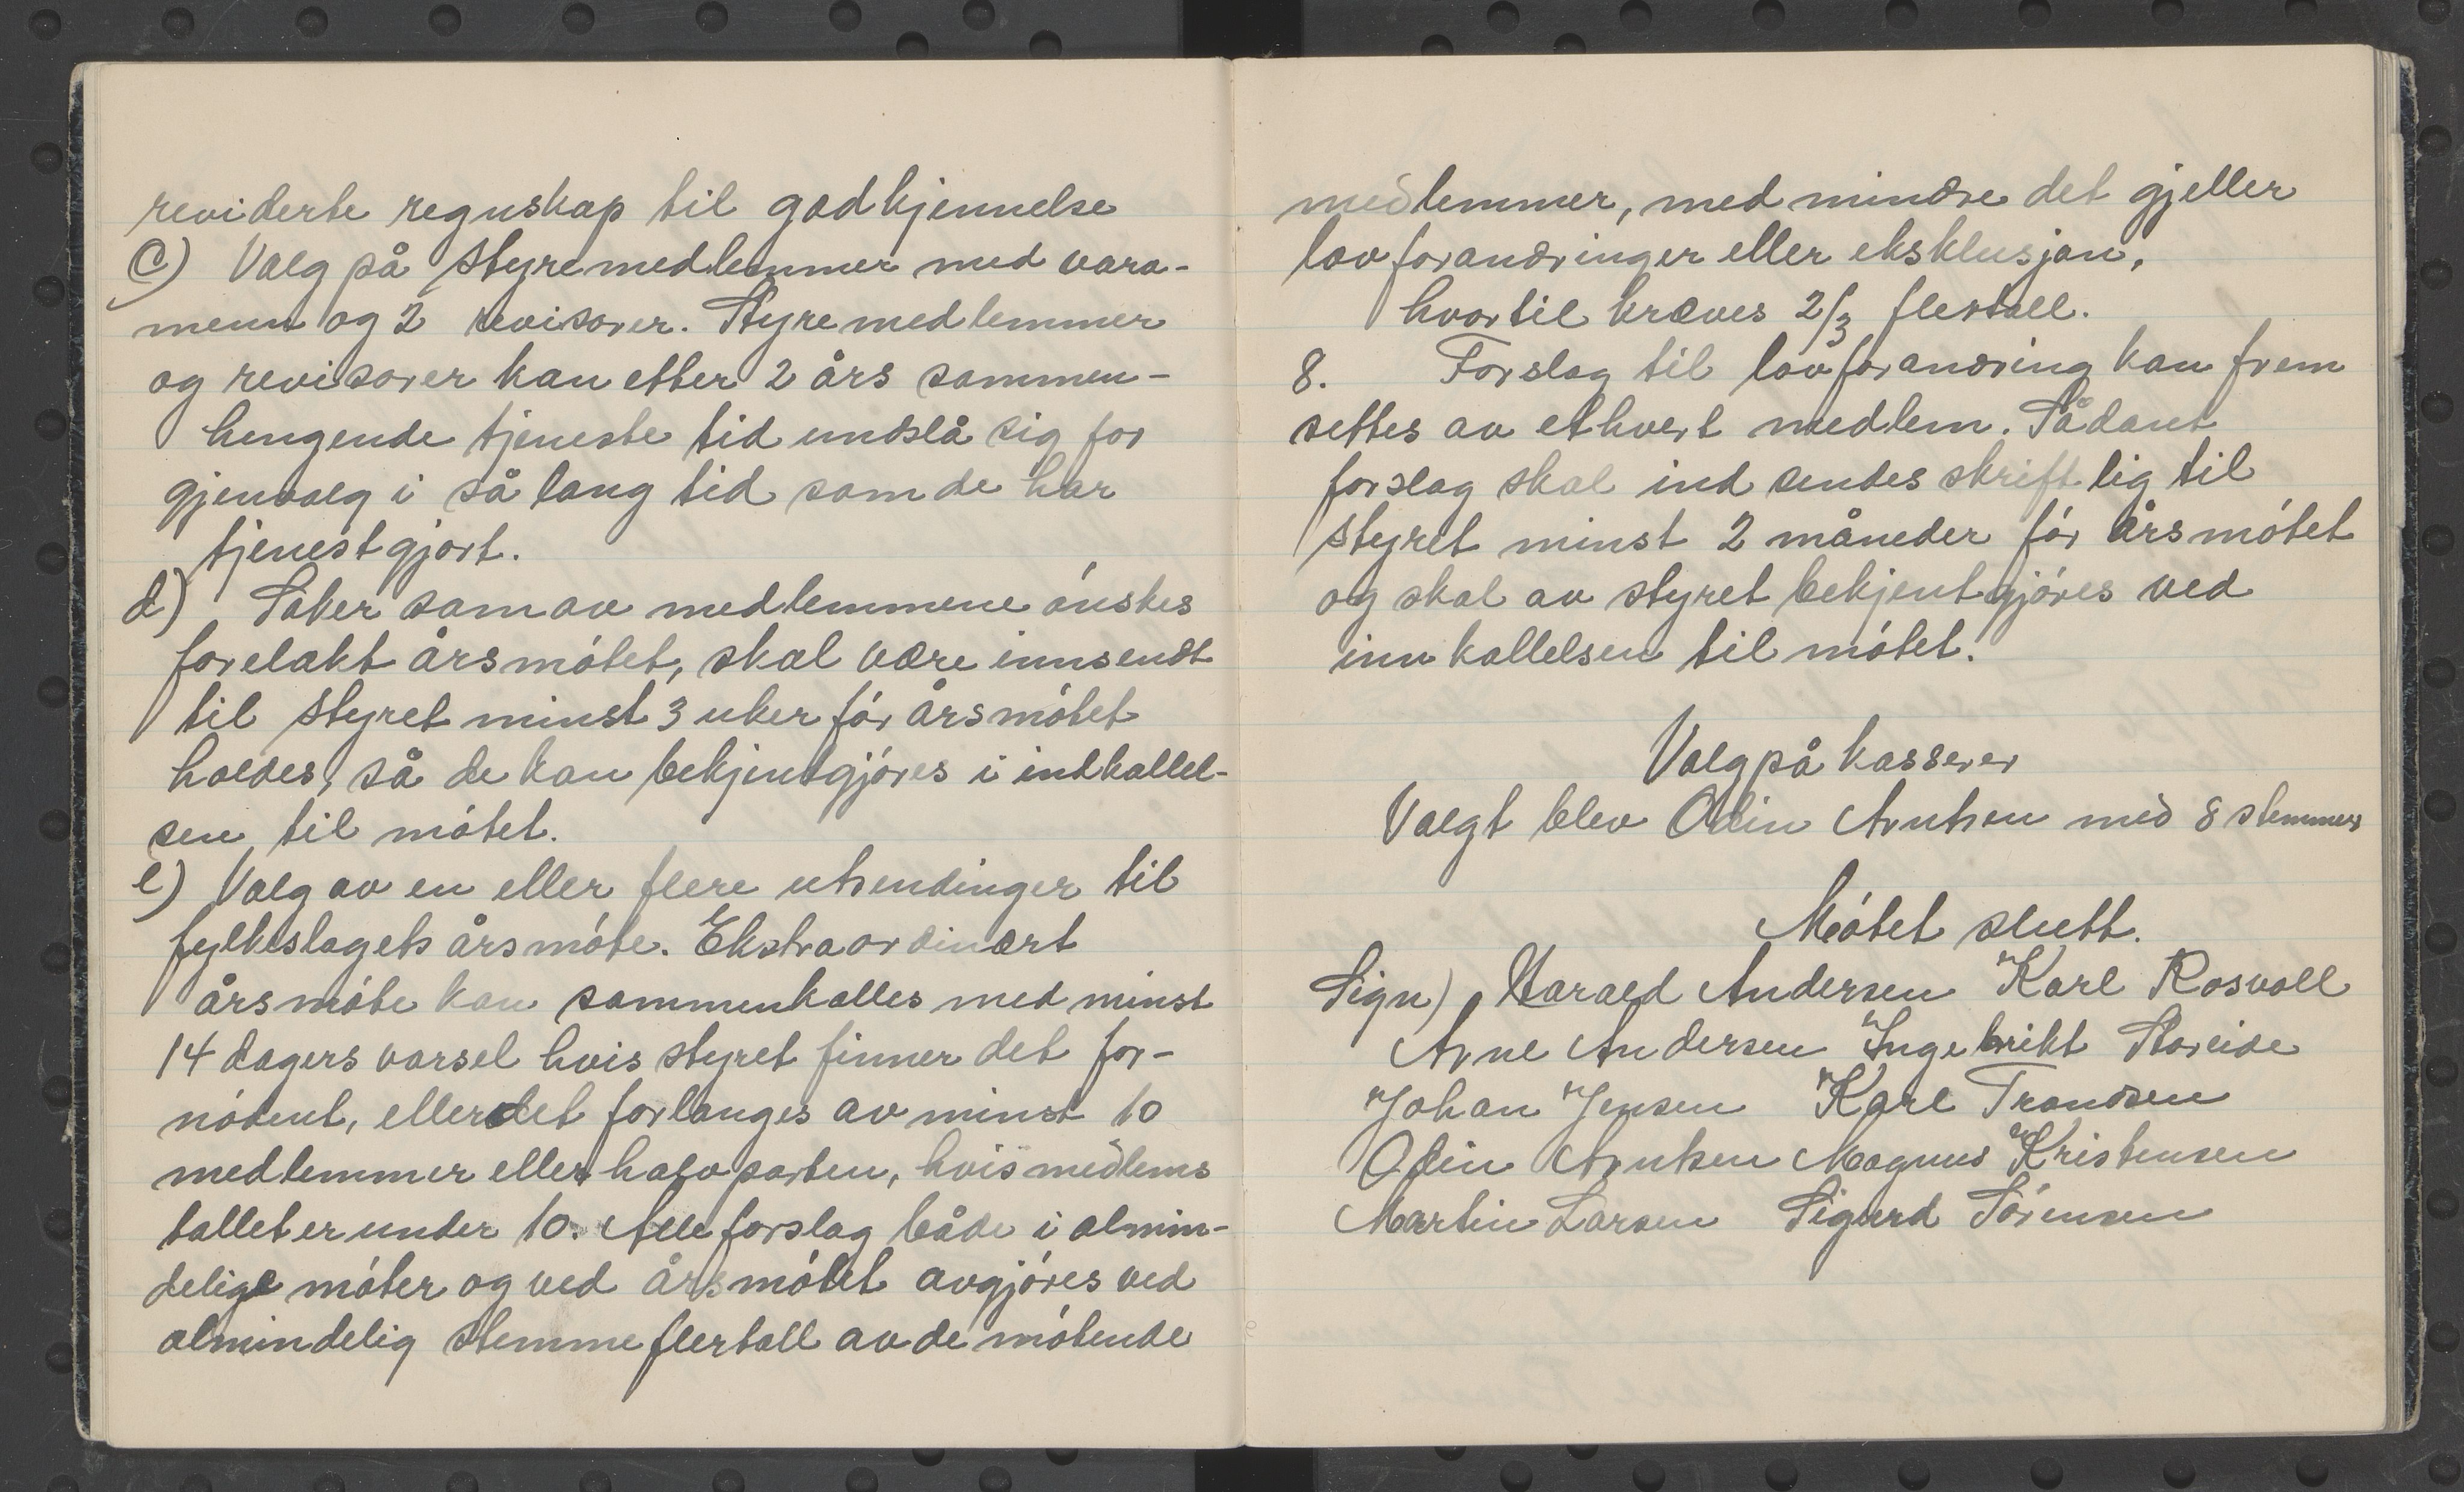 reviderte regnskap til godkjennelse
C) Valg på styremedlemmer med vara-
menn og 2 revisorer. Styremedlemmer
og revisorer kan etter 2 års sammen-
hengende tjeneste tid undslå sig for
gjenvalg i så lang tid som de har
tjenestgjort.
d) Saker som av medlemmene ónskes
forelakt årsmótet, skal være innsendt
til styret minst 3 uker fór årsmótet
holdes, så de kan bekjentgjóres i indkallel-
sen til mótet.
e) Valg av en eller flere utsendinger til
fylkeslagets årsmóte. Ekstraordinært
årsmóte kan sammenkalles med minst
14 dagers varsel hvis styret finner det for-
nódent, eller det forlanges av minst 10
medlemmer eller halvparten, hvis medlems
tallet er under 10. Alle forslag både i almin-
delige móter og ved årsmótet avgjóres ved
almindelig stemmeflertall av de mótende
medlemmer, med mindre det gjeller
lovforandringer eller eksklusjon,
hvortil kræves 2/3 flertall.
8. Forslag til lovforandring kan frem
settes av ethvert medlem. Sådant
forslag skal ind sendes skriftlig til
styret minst 2 måneder fór årsmótet
og skal av styret bekjentgjóres ved
innkallelsen til mótet.
Valg på kasserer
Valgt blev Odin Arntsen med 8 stemmer
Mótet slutt.
Sign) Harald Andersen Karl Rosvoll
Arne Andersen Ingebrikt Storeide
Johan Jensen Karl Trandsen
Odin Arntsen Magnus Kristensen
Martin Larsen Sigurd Sórensen